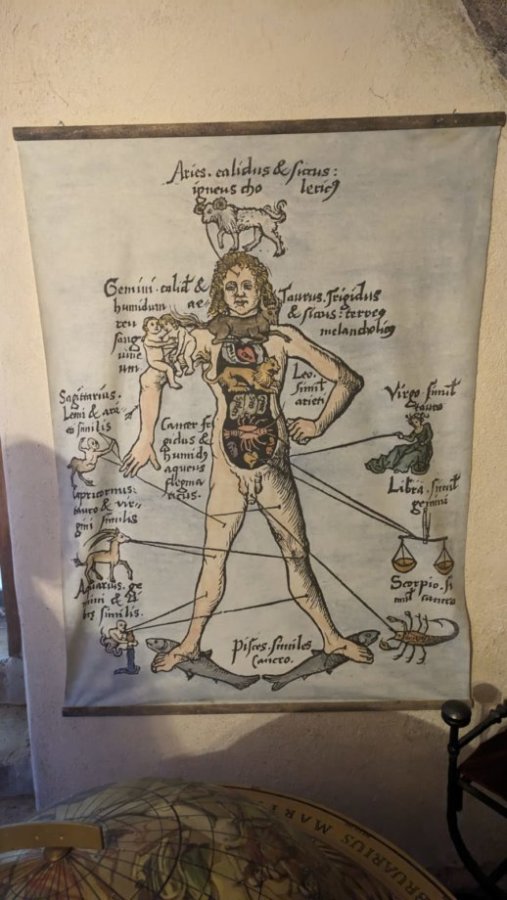 Aries. calidus & siccus:
igneus cho lericꝰ
Gemini. calid' &
humidum ae-
reu
sang
uine
um
Taurus. frigidus
& siccus: terreꝰ
melancholicꝰ
Leo.
simil'
arieti
Sagittarius.
Leoni & ari
similis
Cancer fri
gidus &
humidꝰ
aqueus
flegma
ticus.
Virgo. simil'
tauro
Capricornus:
tauro & vir-
gini similis
Libra. simil'
gemini
Aquarius. ge
mini & li
similis.
Scorpio. si
mil' cancro
Pisces. similes
Cancro.
BRUARIUS MAR